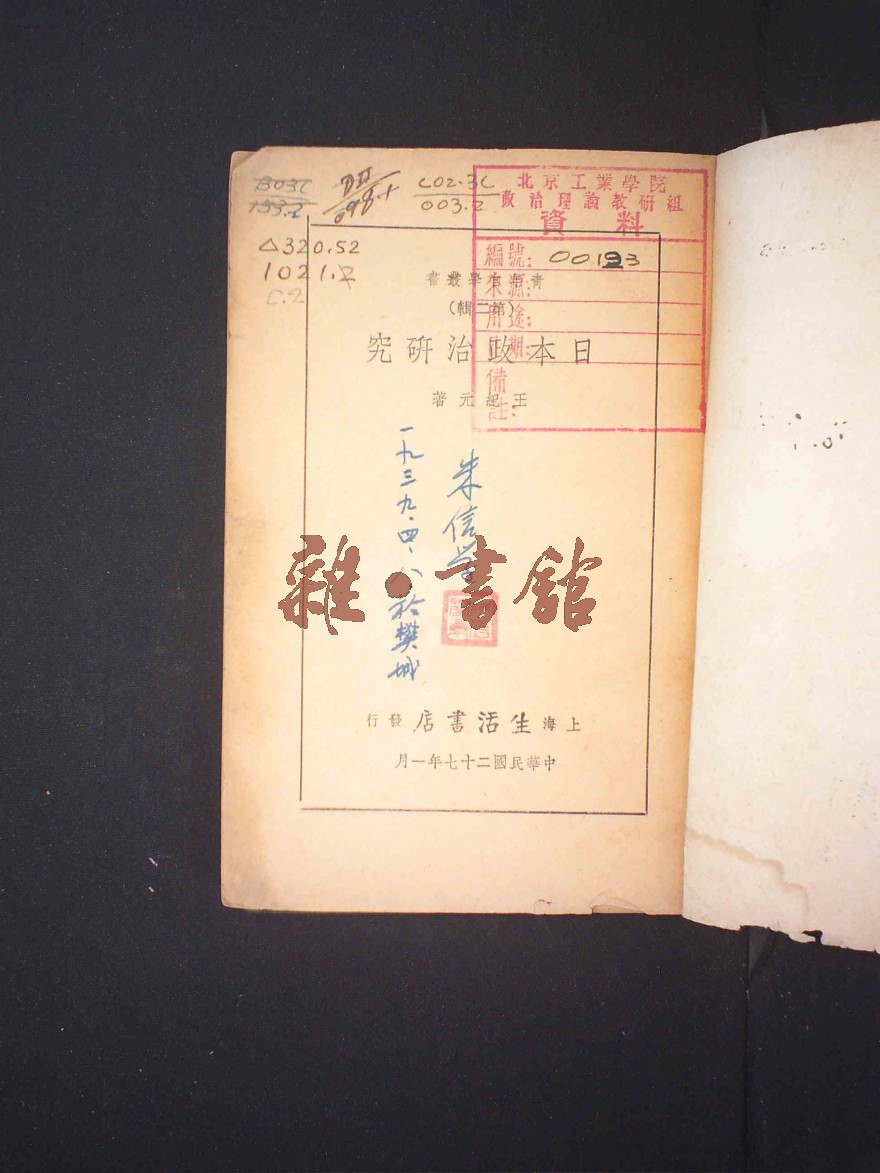 B03C
153.2
C02·3C
003.2
△320.52
1021.2
C.2
北京工業學院
政治理論教研組
資料
編號: 00193
來源:
用途:
日期:
備註:
青年自學叢書
(第二輯)
日本政治研究
王紀元著
朱信學
一九三九·四、八於樊城
雜·書館
上海生活書店發行
中華民國二十七年一月